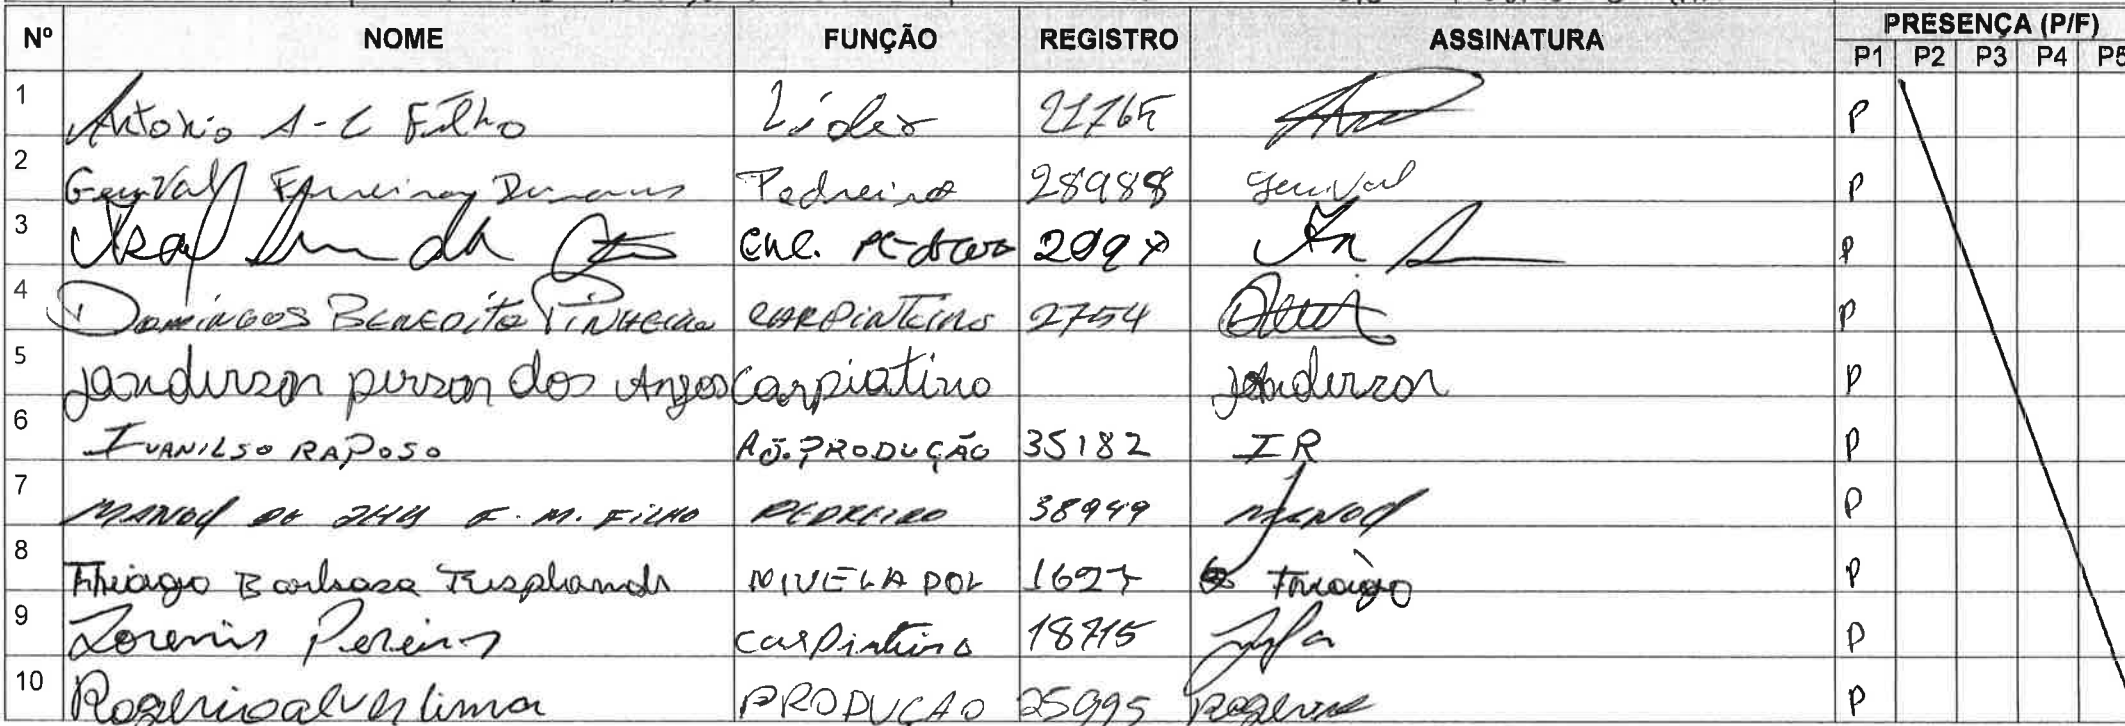 Nº NOME FUNÇÃO REGISTRO ASSINATURA PRESENÇA (P/F)
P1 P2 P3 P4 P5
1 Antonio A-C Filho Líder 21765 P
2 Genival Pedreiro 28988 Genival P
3 da P
4 DOMINGOS BENEDITO PINHEIRO CARPINTEIRO 2754 P
5 Janderson person dos Anjos Carpiatiro Janderson P
6 IVANILSO RAPOSO AJ. PRODUÇÃO 35182 IR P
7 MANOEL F. M. FILHO PEDREIRO 38949 MANOEL P
8 Thiago Barbosa NIVELADOR 1627 Thiago P
9 Pereira Carpinteiro 18715 P
10 Rogerio alves lima PRODUÇAO 25995 Rogerio P